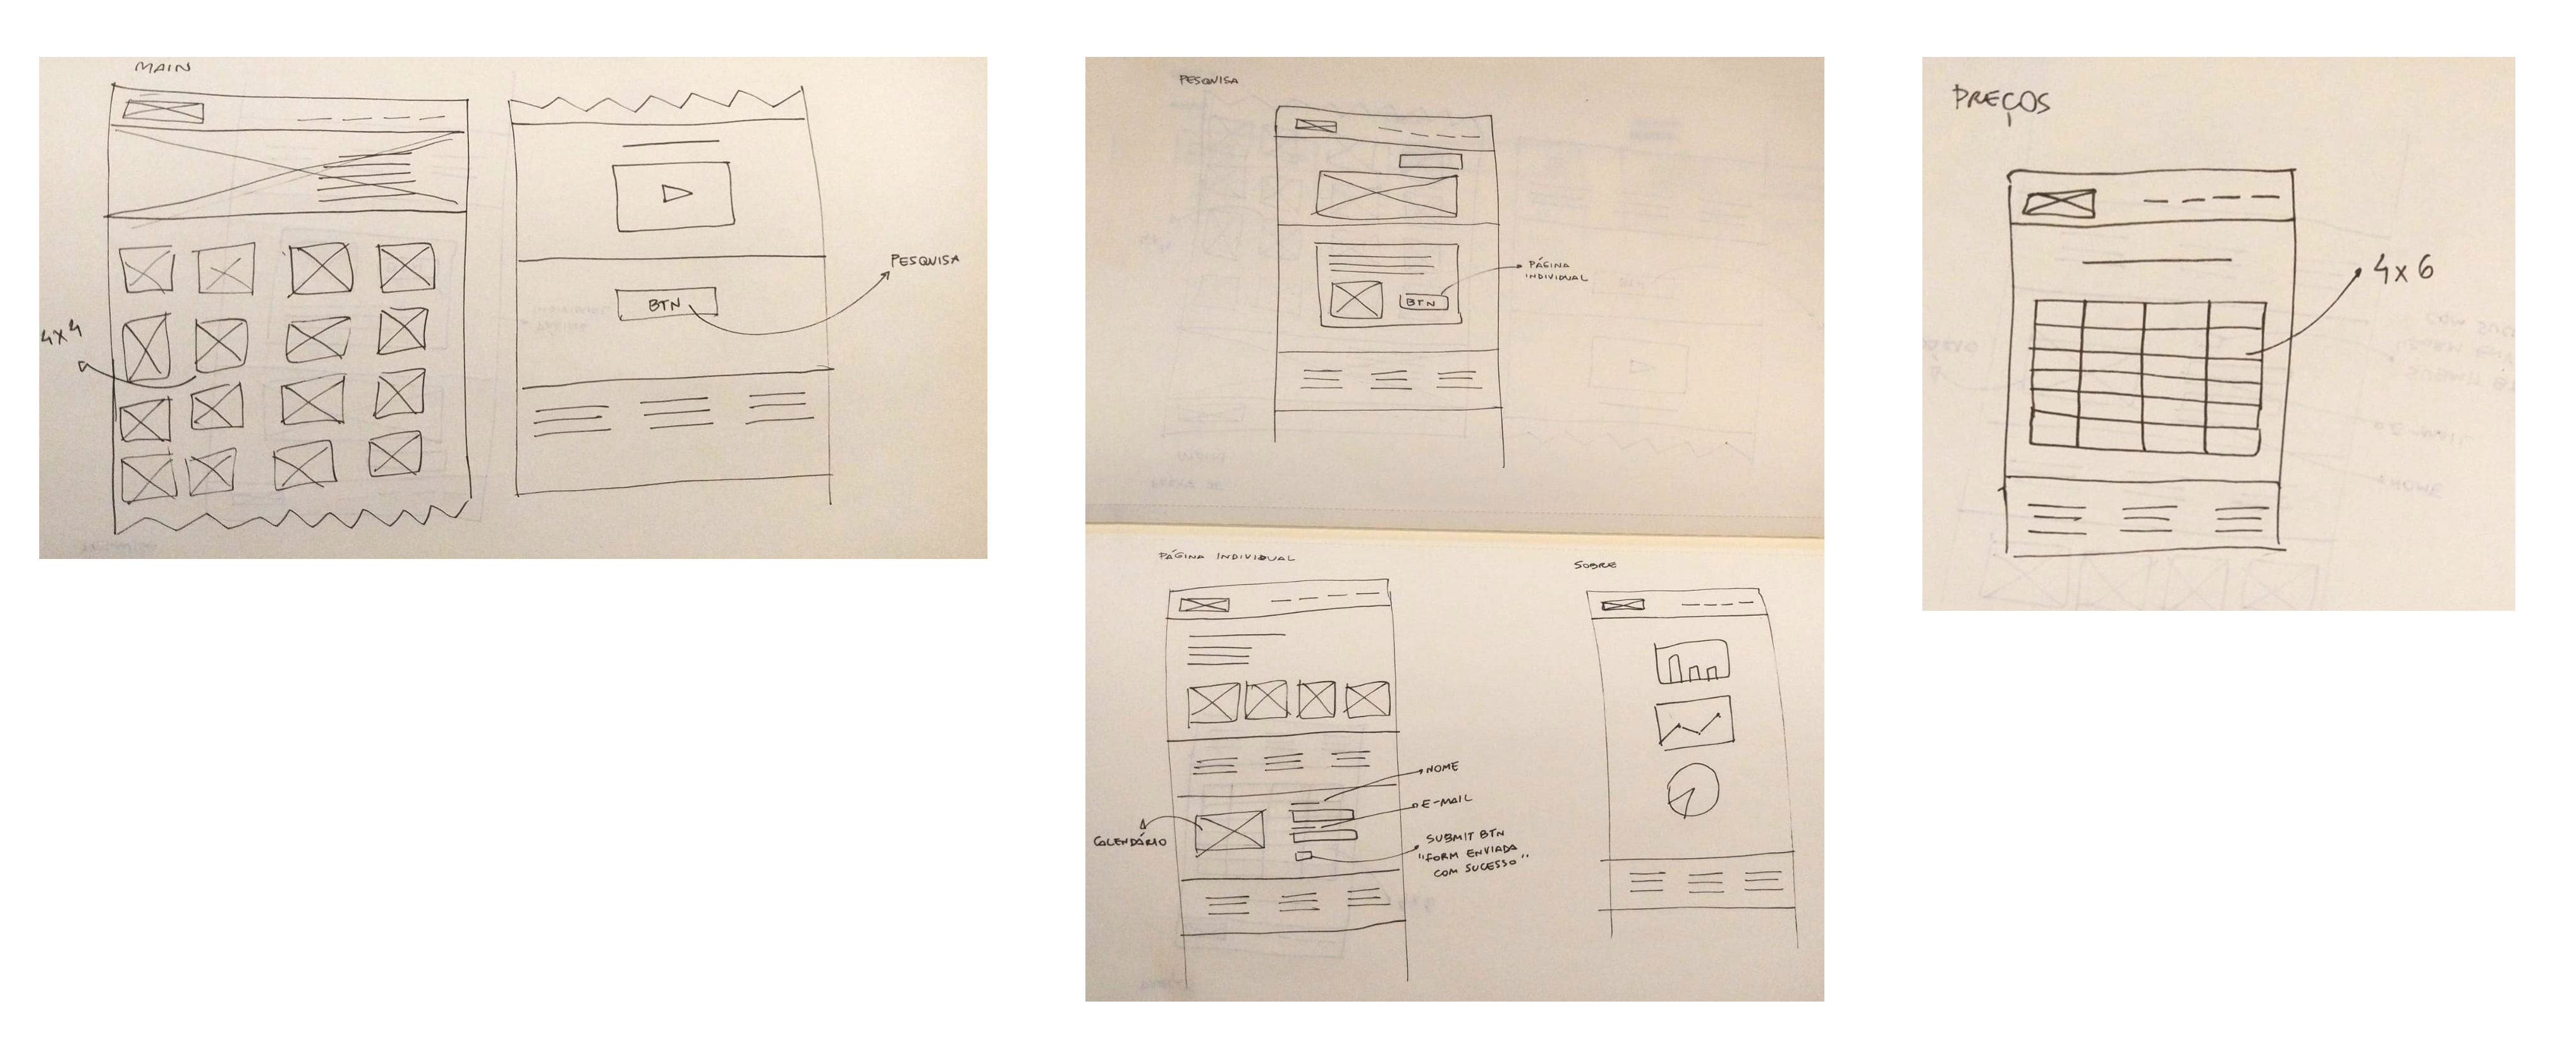 MAIN
4x4
BTN
PESQUISA
PESQUISA
PÁGINA
INDIVIDUAL
BTN
PÁGINA INDIVIDUAL
NOME
E-MAIL
CALENDÁRIO
SUBMIT BTN
"FORM ENVIADA
COM SUCESSO"
SOBRE
PREÇOS
4x6